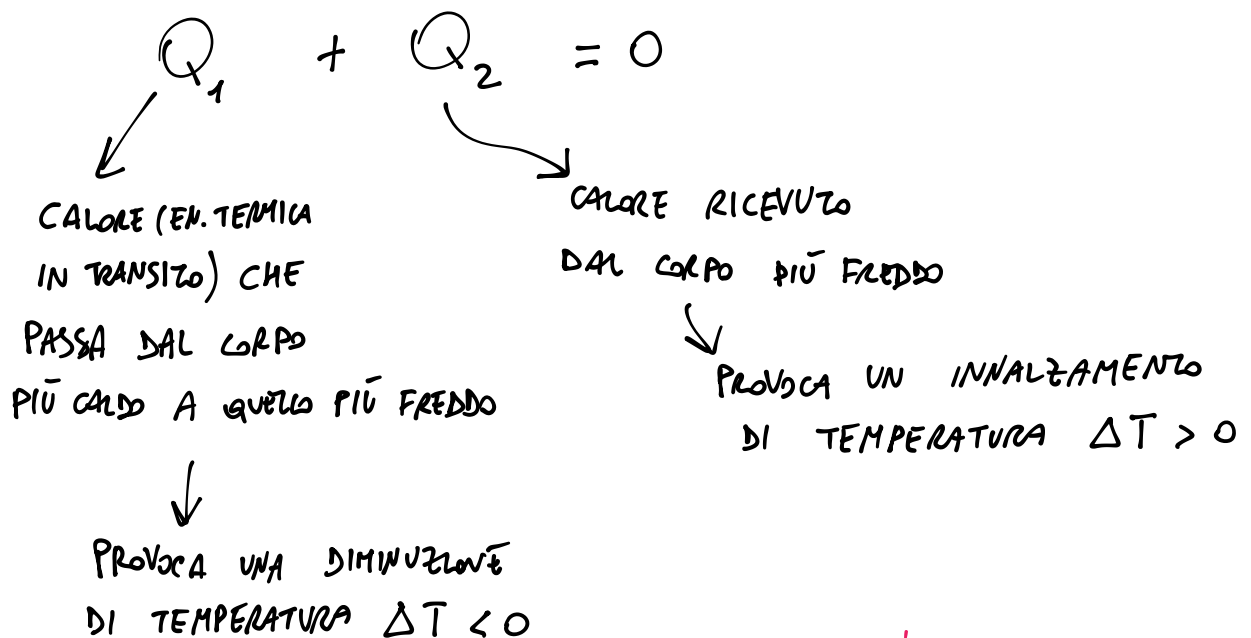 Q₁ + Q₂ = 0
CALORE (EN. TERMICA
IN TRANSITO) CHE
PASSA DAL CORPO
PIÙ CALDO A QUELLO PIÙ FREDDO
PROVOCA UNA DIMINUZIONE
DI TEMPERATURA ΔT < 0
CALORE RICEVUTO
DAL CORPO PIÙ FREDDO
PROVOCA UN INNALZAMENTO
DI TEMPERATURA ΔT > 0